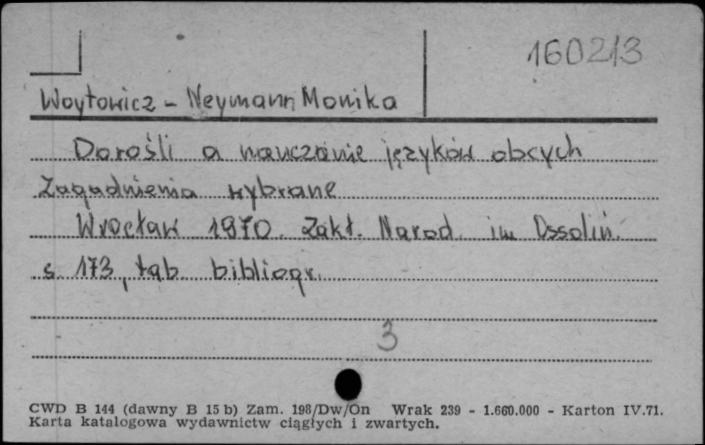 160213
Woytowicz - Neymann Monika
Dorośli a nauczanie języków obcych
Zagadnienia wybrane
Wrocław 1970. Zakł. Narod. im Ossolin.
s. 173, tab. bibliogr.
3
CWD B 144 (dawny B 15 b) Zam. 198/Dw/On Wrak 239 - 1.660.000 - Karton IV.71.
Karta katalogowa wydawnictw ciągłych i zwartych.